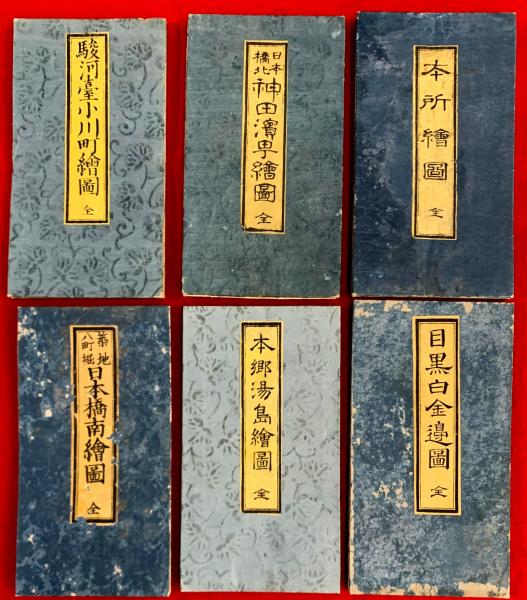 駿河臺小川町繪圖
全
日本
橋北
神田濱町繪圖
全
本所繪圖
全
築地
八町堀
日本橋南繪圖
全
本郷湯島繪圖
全
目黒白金邉圖
全